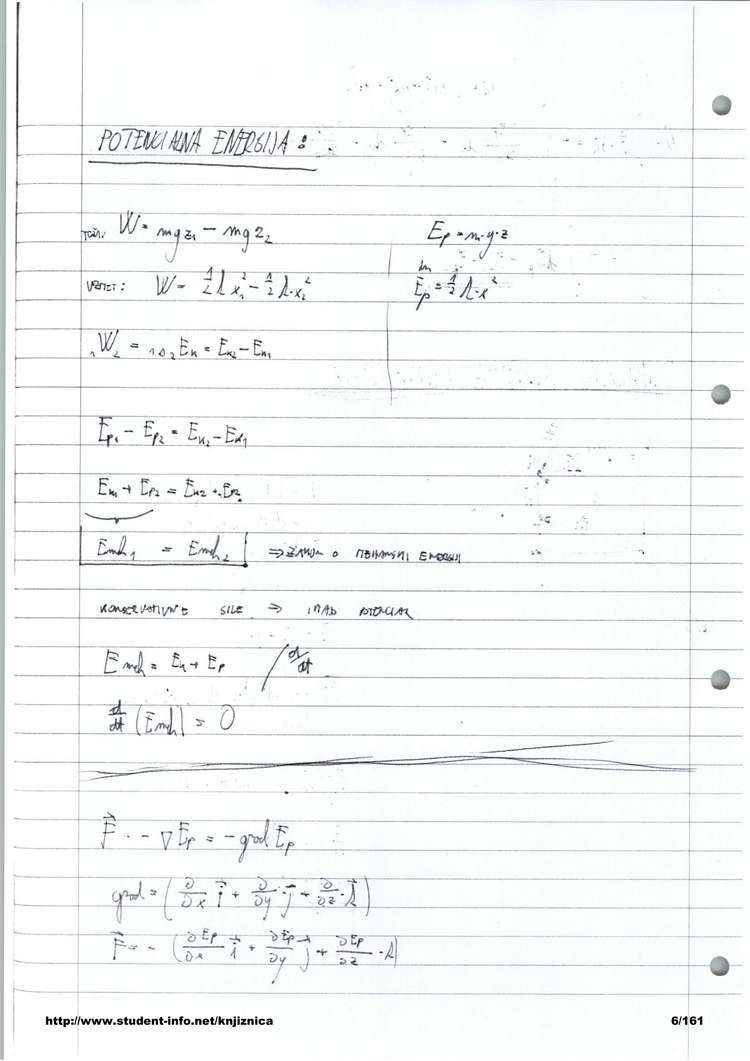 POTENCIALNA ENERGIJA:
TEŽA: W = mgz₁ - mgz₂ Eₚ = m·g·z
VZMET: W = 1/2 k x₁² - 1/2 k·x₂² Eₚ = 1/2 k·x²
₁W₂ = ₁Δ₂Eₖ = Eₖ₂ - Eₖ₁
Eₚ₁ - Eₚ₂ = Eₖ₂ - Eₖ₁
= Eₖ₂ +
Emeh₁ = Emeh₂ ⇒ ZAKON O MEHANSKI ENERGIJI
KONSERVATIVNE SILE ⇒ IMAJO POTENCIAL
Emeh = Eₖ + Eₚ / d/dt
d/dt (Emeh) = 0
F⃗ = - ∇Eₚ = - grad Eₚ
grad = (∂/∂x i⃗ + ∂/∂y · j⃗ + ∂/∂z · k⃗)
F⃗ = - (∂Eₚ/∂x i⃗ + ∂Eₚ/∂y j⃗ + ∂Eₚ/∂z · k)
http://www.student-info.net/knjiznica 6/161